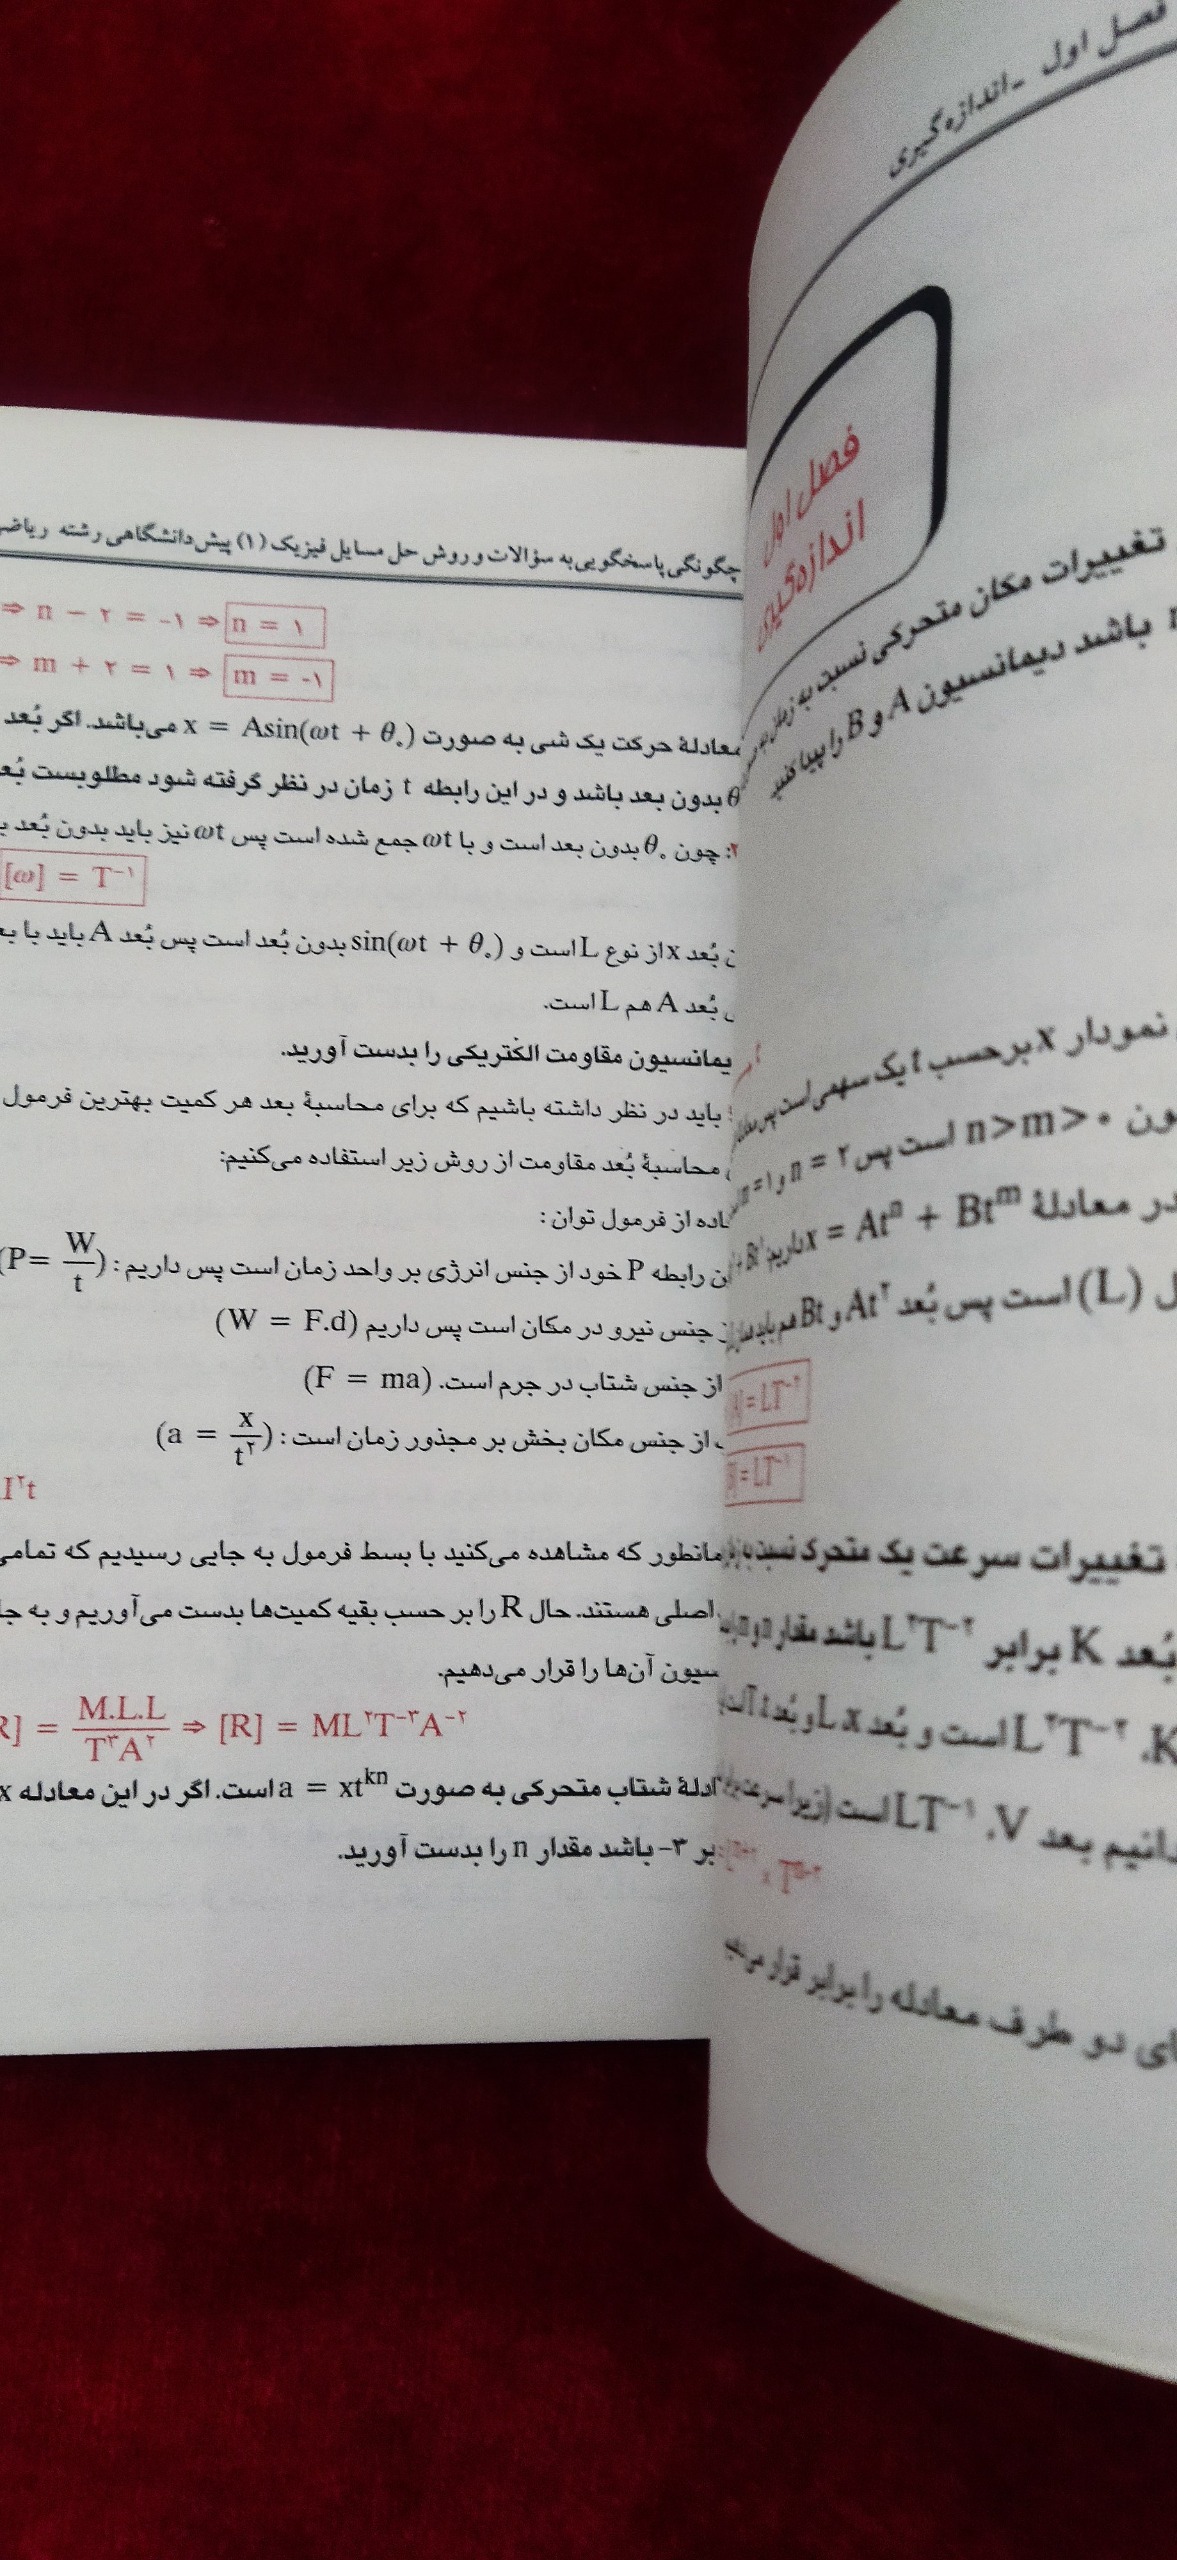 فصل اول - اندازه‌گیری
فصل اول
اندازه‌گیری
تغییرات مکان متحرکی نسبت به زمان
باشد دیمانسیون A و B را پیدا کنید
نمودار x برحسب t یک سهمی است پس
n>m>۰ است پس n = ۲ و
در معادلهٔ x = Atⁿ + Btᵐ داریم:
(L) است پس بُعد At۲ و Bt هم باید
[A] = LT⁻۲
[B] = LT⁻۱
تغییرات سرعت یک متحرک نسبت به
بُعد K برابر باشد مقدار
است و بُعد x، L و بُعد t
بعد V، LT⁻۱ است (زیرا سرعت
دو طرف معادله را برابر قرار می‌دهیم
چگونگی پاسخگویی به سؤالات و روش حل مسایل فیزیک (۱) پیش‌دانشگاهی رشته ریاضی
⇒ n − ۲ = -۱ ⇒ n = ۱
⇒ m + ۲ = ۱ ⇒ m = -۱
معادلهٔ حرکت یک شی به صورت x = Asin(ωt + θ۰) می‌باشد. اگر بُعد
θ بدون بعد باشد و در این رابطه t زمان در نظر گرفته شود مطلوبست بُعد
۲: چون θ۰ بدون بعد است و با ωt جمع شده است پس ωt نیز باید بدون بُعد
[ω] = T⁻۱
بُعد x از نوع L است و sin(ωt + θ۰) بدون بُعد است پس بُعد A باید با
بُعد A هم L است.
یمانسیون مقاومت الکتریکی را بدست آورید.
باید در نظر داشته باشیم که برای محاسبهٔ بعد هر کمیت بهترین فرمول
محاسبهٔ بُعد مقاومت از روش زیر استفاده می‌کنیم:
اده از فرمول توان :
ن رابطه P خود از جنس انرژی بر واحد زمان است پس داریم : (P= W/t)
از جنس نیرو در مکان است پس داریم (W = F.d)
از جنس شتاب در جرم است. (F = ma)
از جنس مکان بخش بر مجذور زمان است : (a = x/t۲)
I۲t
مانطور که مشاهده می‌کنید با بسط فرمول به جایی رسیدیم که تمامی
اصلی هستند. حال R را بر حسب بقیه کمیت‌ها بدست می‌آوریم و به
سیون آن‌ها را قرار می‌دهیم.
R] = M.L.L/T۳A۲ ⇒ [R] = ML۲T⁻۳A⁻۲
ادلهٔ شتاب متحرکی به صورت a = xtᵏⁿ است. اگر در این معادله x
بر ۳- باشد مقدار n را بدست آورید.